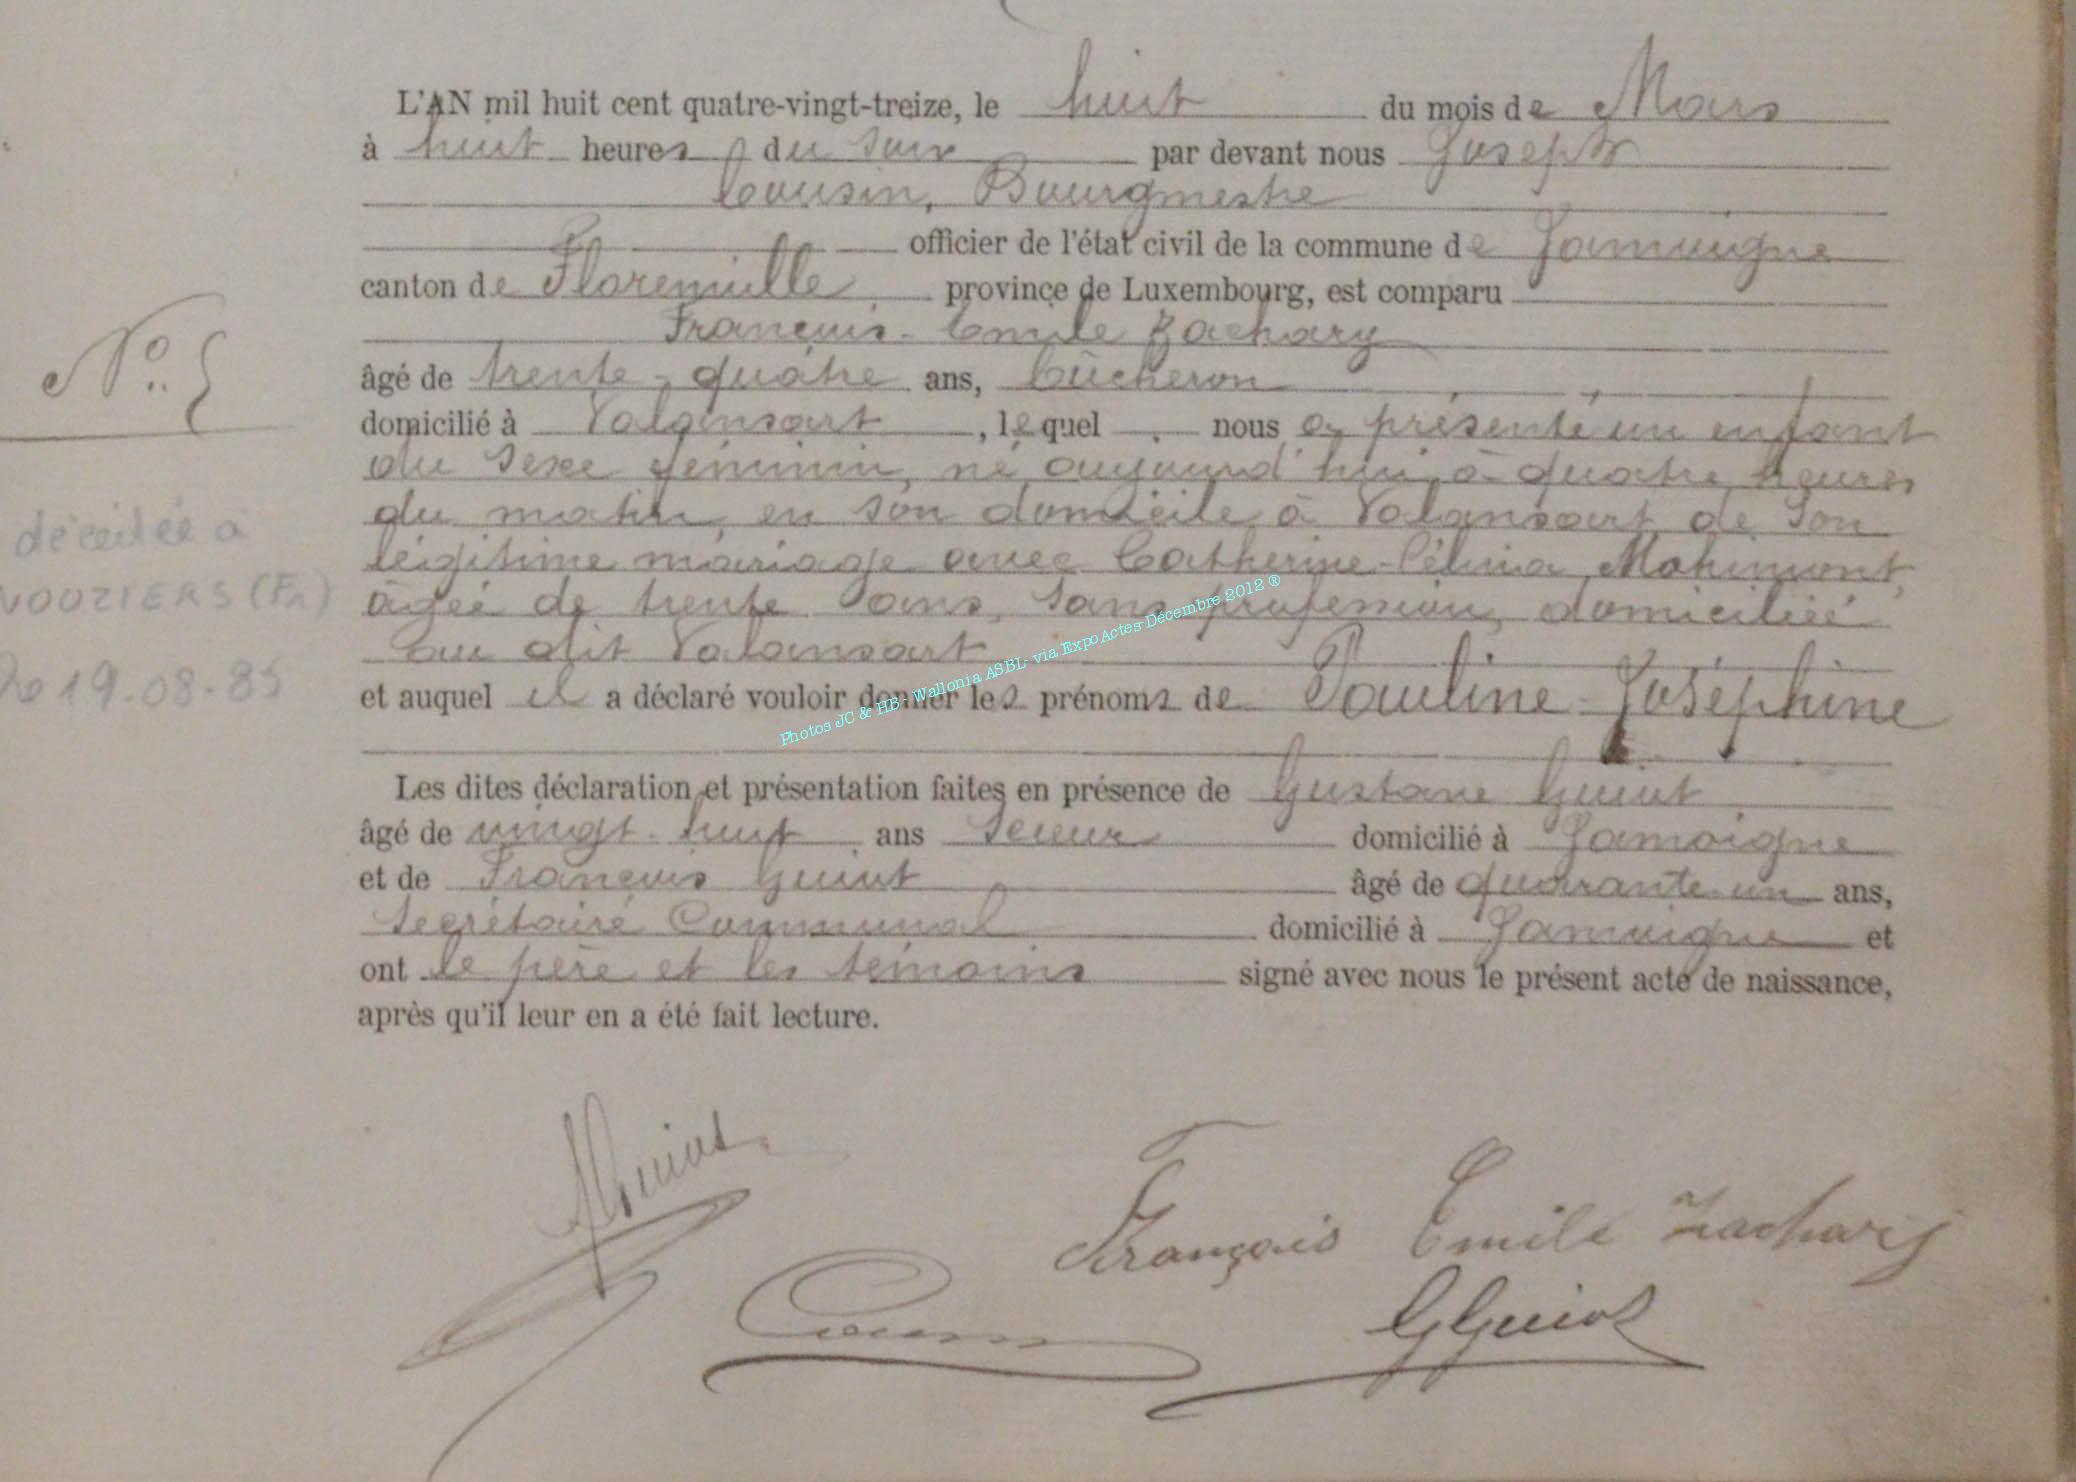 L'AN mil huit cent quatre-vingt-treize, le huit du mois de Mars
à huit heures du soir par devant nous Joseph
Cousin, Bourgmestre
officier de l'état civil de la commune de Jamoigne
canton de Florenville province de Luxembourg, est comparu
François-Emile Zachary
âgé de trente-quatre ans, bûcheron
domicilié à Valansart, lequel nous a présenté un enfant
du sexe féminin, né aujourd'hui à quatre heures
du matin, en son domicile à Valansart, de son
légitime mariage avec Catherine-Célina Mahimont,
âgée de trente ans, sans profession, domiciliée
au dit Valansart
et auquel il a déclaré vouloir donner les prénoms de Pauline-Joséphine
Les dites déclaration et présentation faites en présence de Gustave Guiot
âgé de vingt-huit ans domicilié à Jamoigne
et de François Guiot âgé de quarante-un ans,
Secrétaire Communal domicilié à Jamoigne et
ont le père et les témoins signé avec nous le présent acte de naissance,
après qu'il leur en a été fait lecture.
N° 5
décédée à
VOUZIERS (Fr)
le 19-08-85
Photos JC & HB - Wallonia ASBL- via Expo Actes-Décembre 2012 ®
Guiot
François Emile Zachary
Cousin
G Guiot